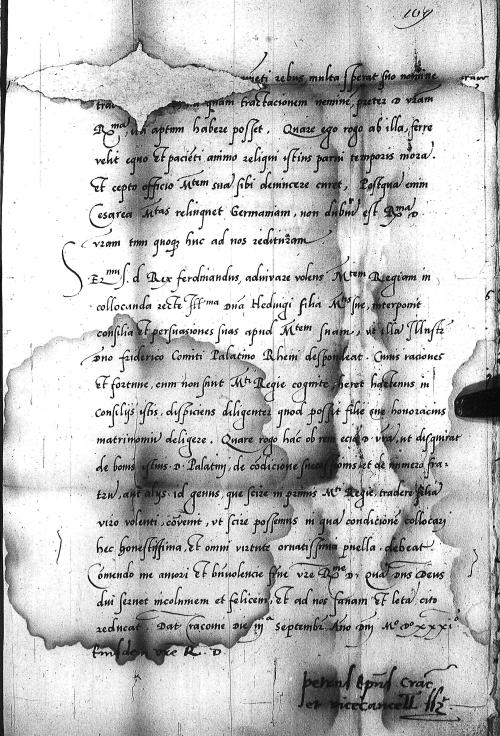 169
rebus multa sperat suo nomine
quam tractacionem nemine, preter D vram
R ma, ita aptum habere posset. Quare ego rogo ab illa, ferre
velit equo et pacieti animo reliqui istius parui temporis mora.
Et cepto officio Mtem sua sibi deuincere curet. Postqua enim
Cesarea Mtas relinquet Germaniam, non dubiu est R ma D
vram tum quoqz huc ad nos redituram
Ser mus S. d Rex ferdinandus, adiuuare volens Mtem Regiam in
collocanda recte Ill ma dna Heduigi filia Mtis sue, interponit
consilia et persuasiones suas apud Mtem suam, vt illa Illustri
dno friderico Comiti Palatino Rheni despondeat. Cuius raciones
et fortune, cum non sint Mti Regie cognite, heret hactenus in
consilijs istis, dispiciens diligenter quod possit filie sue honoracius
matrimoniu deligere. Quare rogo hac ob rem D. vra, ut disquirat
de bonis istius D. Palatini, de condicione successionis et de numero fra-
tru, aut alijs id genus, que scire in primis Mti Regie, tradere filia
viro volenti, covenit, vt scire possemus in qua condicione collocari
hec honestissima, et omni virtute ornatissima puella debeat.
Comendo me amori et beniuolencie vre R me D. qua dns Deus
diu seruet incolumem et felicem, et ad nos sanam et leta cito
reducat. Dat Cracouie die Septembr. Ano dni Mo Do xxxio
Eiusdem vre R. D
petrus Epus Crac
et vicecancell